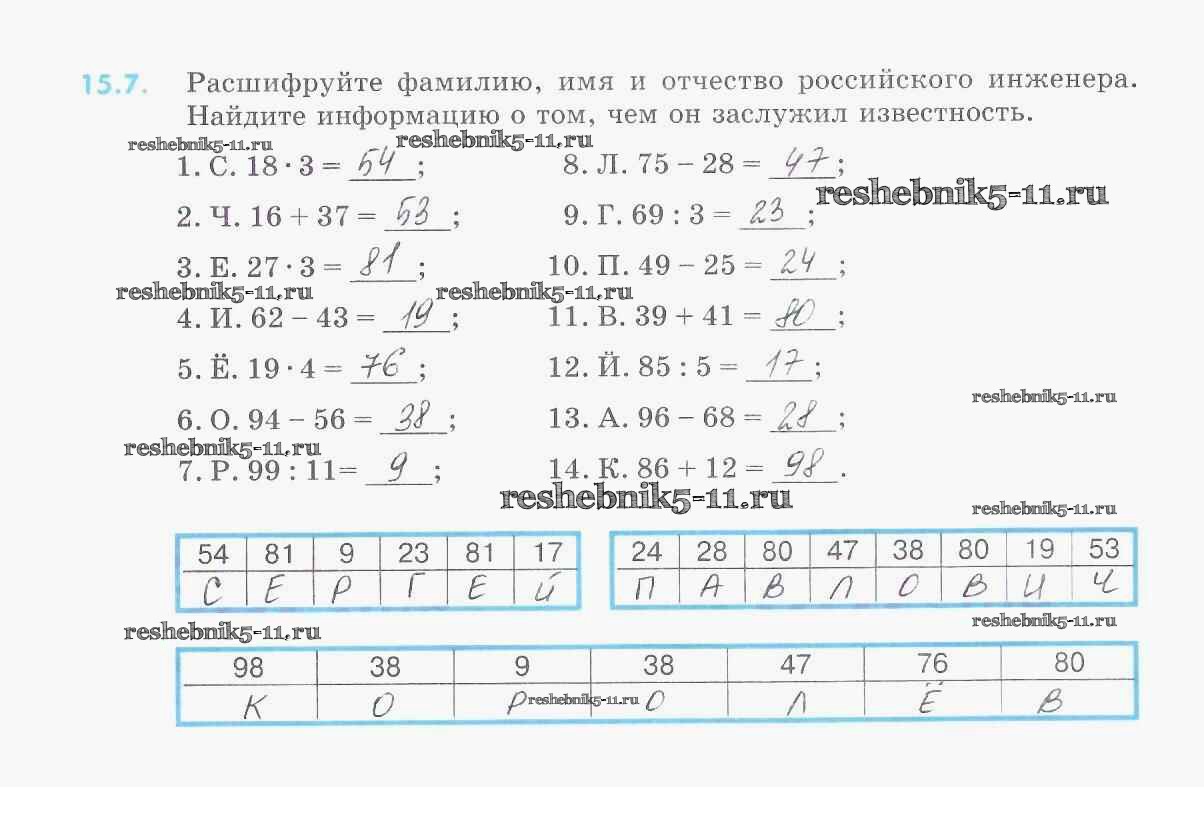 15.7. Расшифруйте фамилию, имя и отчество российского инженера.
Найдите информацию о том, чем он заслужил известность.
reshebnik5-11.ru reshebnik5-11.ru
1. С. 18 · 3 = 54; 8. Л. 75 − 28 = 47;
reshebnik5-11.ru
2. Ч. 16 + 37 = 53; 9. Г. 69 : 3 = 23;
3. Е. 27 · 3 = 81; 10. П. 49 − 25 = 24;
reshebnik5-11.ru reshebnik5-11.ru
4. И. 62 − 43 = 19; 11. В. 39 + 41 = 80;
5. Ё. 19 · 4 = 76; 12. Й. 85 : 5 = 17;
reshebnik5-11.ru
6. О. 94 − 56 = 38; 13. А. 96 − 68 = 28;
reshebnik5-11.ru
7. Р. 99 : 11= 9; 14. К. 86 + 12 = 98.
reshebnik5-11.ru
reshebnik5-11.ru
54 81 9 23 81 17 24 28 80 47 38 80 19 53
С Е Р Г Е Й П А В Л О В И Ч
reshebnik5-11.ru reshebnik5-11.ru
98 38 9 38 47 76 80
К О Р О Л Ё В
reshebnik5-11.ru